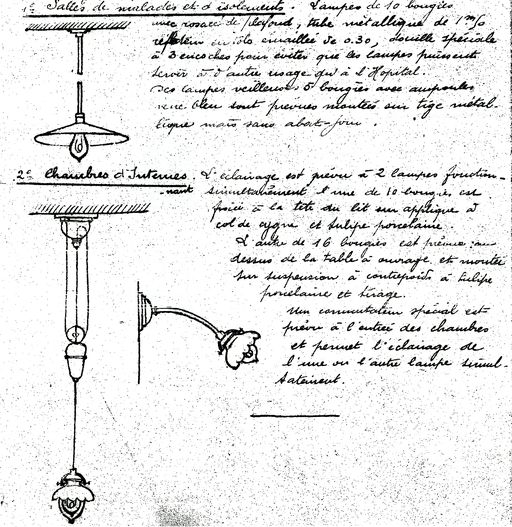 1º Salles de malades et d'isolement. Lampes de 10 bougies
avec rosace de plafond, tube métallique de 1m/0
réflecteur en tôle émaillée de 0.30, douille spéciale
à 3 encoches pour éviter que les lampes puissent
servir à d'autre usage qu'à l'Hopital.
Des lampes veilleuses 5 bougies avec ampoules
verre bleu sont prévues montées sur tige métal-
lique mais sans abat-jour.
2º Chambres d'Internes. L'éclairage est prévu à 2 lampes fonction-
nant simultanément l'une de 10 bougies est
fixée à la tête du lit sur applique à
col de cygne et tulipe porcelaine.
L'autre de 16 bougies est prévue au-
dessus de la table à ouvrage et montée
sur suspension à contrepoids à tulipe
porcelaine et tirage.
Un commutateur spécial est
prévu à l'entrée des chambres
et permet l'éclairage de
l'une ou l'autre lampe simul-
tatément.